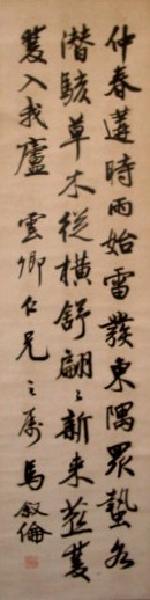 仲春遘時雨始雷發東隅眾蟄各
潛駭草木從橫舒翩〻新來燕雙
雙入我廬 雲卿仁兄之屬 馬叙倫